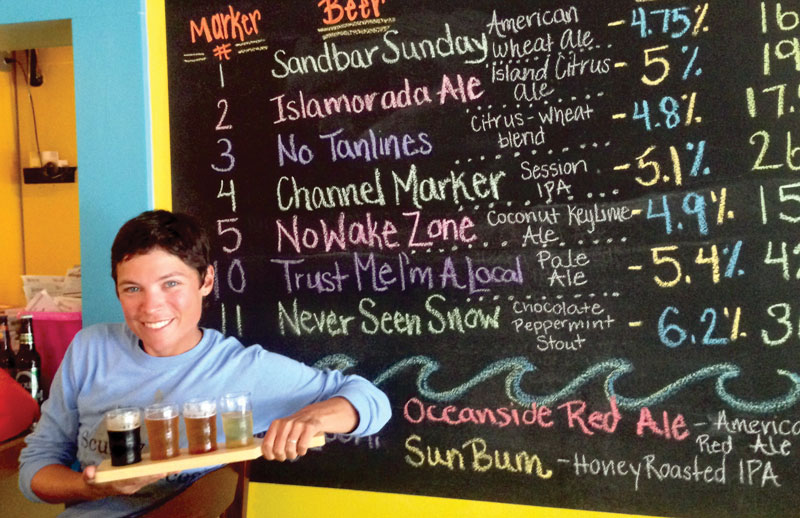 Marker # Beer
1 Sandbar Sunday American Wheat Ale - 4.75%
2 Islamorada Ale Island Citrus ale - 5%
3 No Tanlines Citrus-wheat blend - 4.8%
4 Channel Marker Session IPA - 5.1%
5 No Wake Zone Coconut Key Lime Ale - 4.9%
10 Trust Me I'm A Local Pale Ale - 5.4%
11 Never Seen Snow Chocolate Peppermint Stout - 6.2%
Oceanside Red Ale - America
Red Ale
SunBurn - Honey Roasted IPA